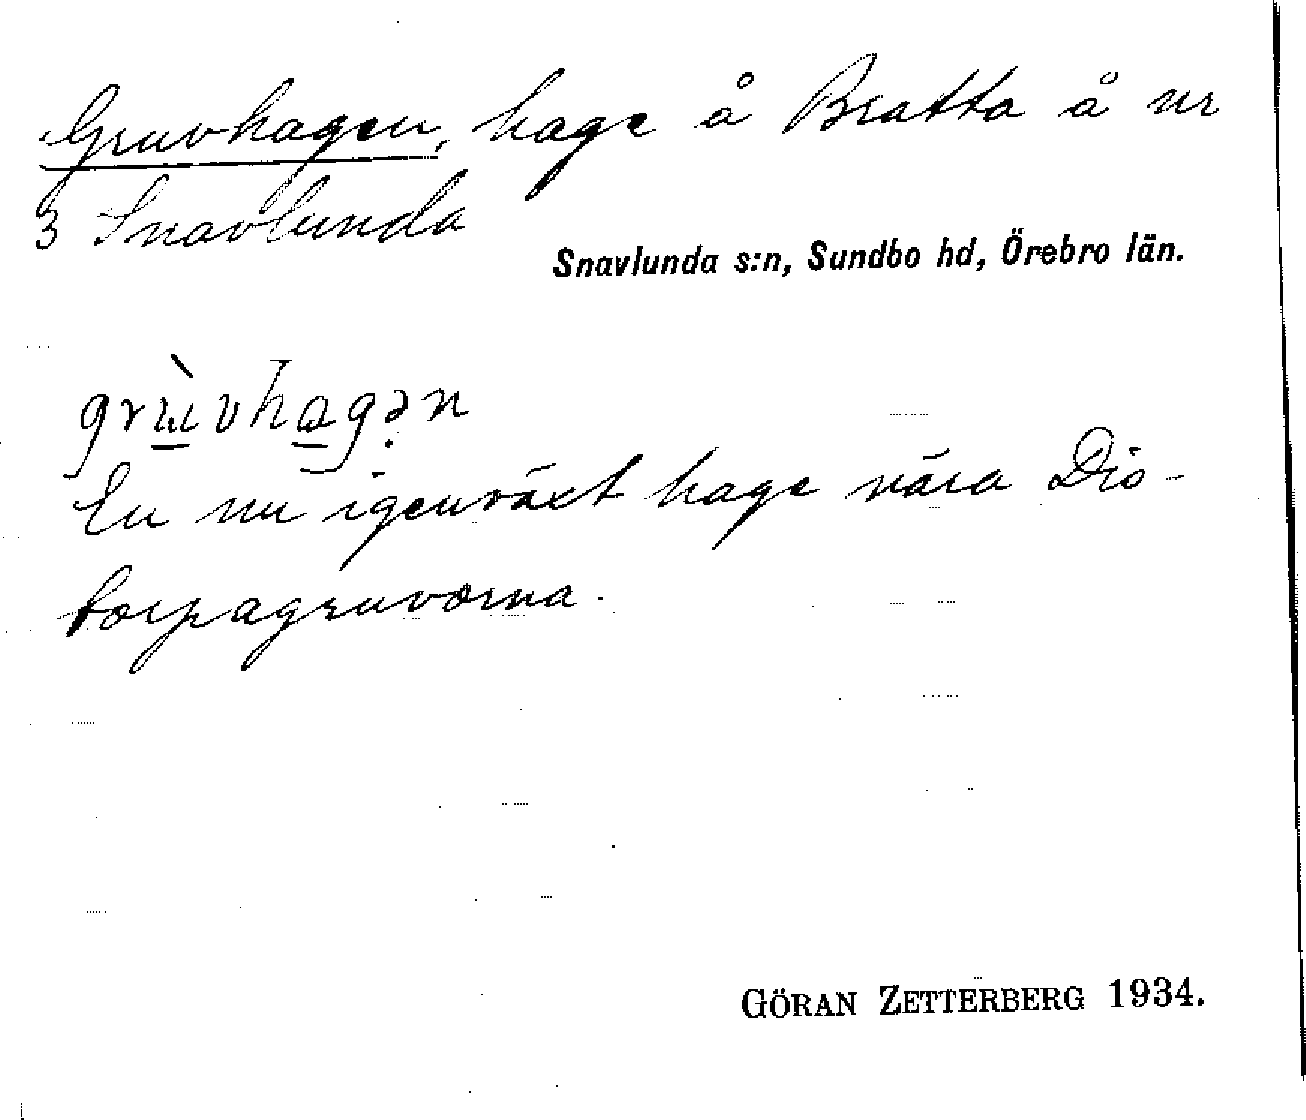 Gruvhagen, hage å Bratta å nr
3 Snavlunda
Snavlunda s:n, Sundbo hd, Örebro län.
grɯ̀vhagən
En nu igenväxt hage nära Dio-
torpagruvorna.
GÖRAN ZETTERBERG 1934.